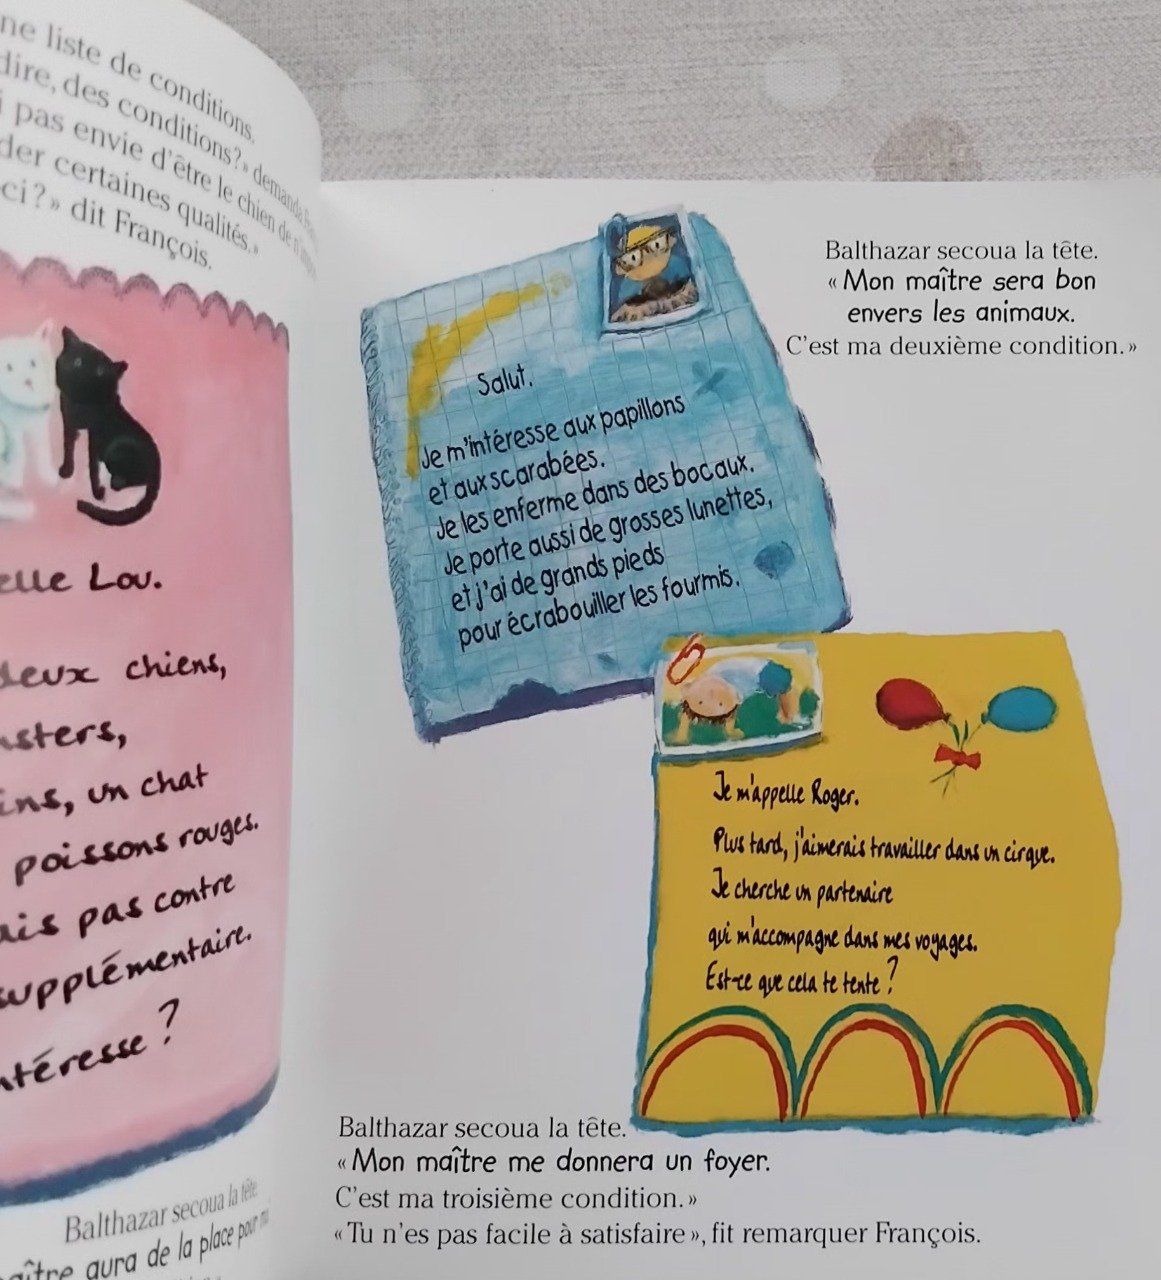 ne liste de conditions.
dire, des conditions?» demanda
pas envie d'être le chien de n'
der certaines qualités.»
ci?» dit François.
elle Lou.
deux chiens,
sters,
ins, un chat
poissons rouges.
ais pas contre
supplémentaire.
ntéresse?
Balthazar secoua la tête
aître aura de la place pour
Salut.
Je m'intéresse aux papillons
et aux scarabées.
Je les enferme dans des bocaux.
Je porte aussi de grosses lunettes,
et j'ai de grands pieds
pour écrabouiller les fourmis.
Balthazar secoua la tête.
«Mon maître sera bon
envers les animaux.
C'est ma deuxième condition.»
Je m'appelle Roger.
Plus tard, j'aimerais travailler dans un cirque.
Je cherche un partenaire
qui m'accompagne dans mes voyages.
Est-ce que cela te tente?
Balthazar secoua la tête.
«Mon maître me donnera un foyer.
C'est ma troisième condition.»
«Tu n'es pas facile à satisfaire», fit remarquer François.